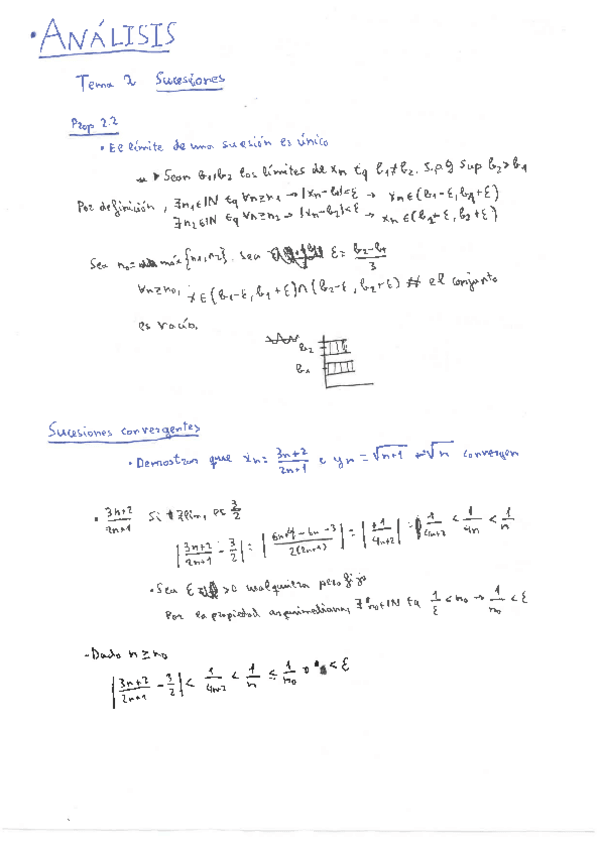 • ANÁLISIS
Tema 2 Sucesiones
Prop 2.2
• El límite de una sucesión es único
▸ Sean l₁, l₂ los límites de xₙ tq l₁≠l₂. S.p.g sup l₂>l₁
Por definición, ∃n₁∈IN tq ∀n≥n₁ → |xₙ-l₁|<ε → xₙ∈(l₁-ε, l₁+ε)
∃n₂∈IN tq ∀n≥n₂ → |xₙ-l₂|<ε → xₙ∈(l₂-ε, l₂+ε)
Sea n₀= máx{n₁,n₂}. Sea ε = (l₂-l₁)/3
∀n≥n₀, x∈(l₁-ε, l₁+ε)∩(l₂-ε, l₂+ε) # el conjunto
es vacío.
l₂
l₁
Sucesiones convergentes
• Demostrar que xₙ= (3n+2)/(2n+1) e yₙ = √(n+1) - √n convergen
• (3n+2)/(2n+1) Si ∃lim, es 3/2
|(3n+2)/(2n+1) - 3/2| = |(6n+4-6n-3)/(2(2n+1))| = |+1/(4n+2)| = 1/(4n+2) < 1/(4n) < 1/n
• Sea ε >0 cualquiera pero fijo
Por la propiedad arquimediana, ∃ n₀∈IN tq 1/ε < n₀ → 1/n₀ < ε
- Dado n ≥ n₀
|(3n+2)/(2n+1) - 3/2| < 1/(4n+2) < 1/n ≤ 1/n₀ < ε